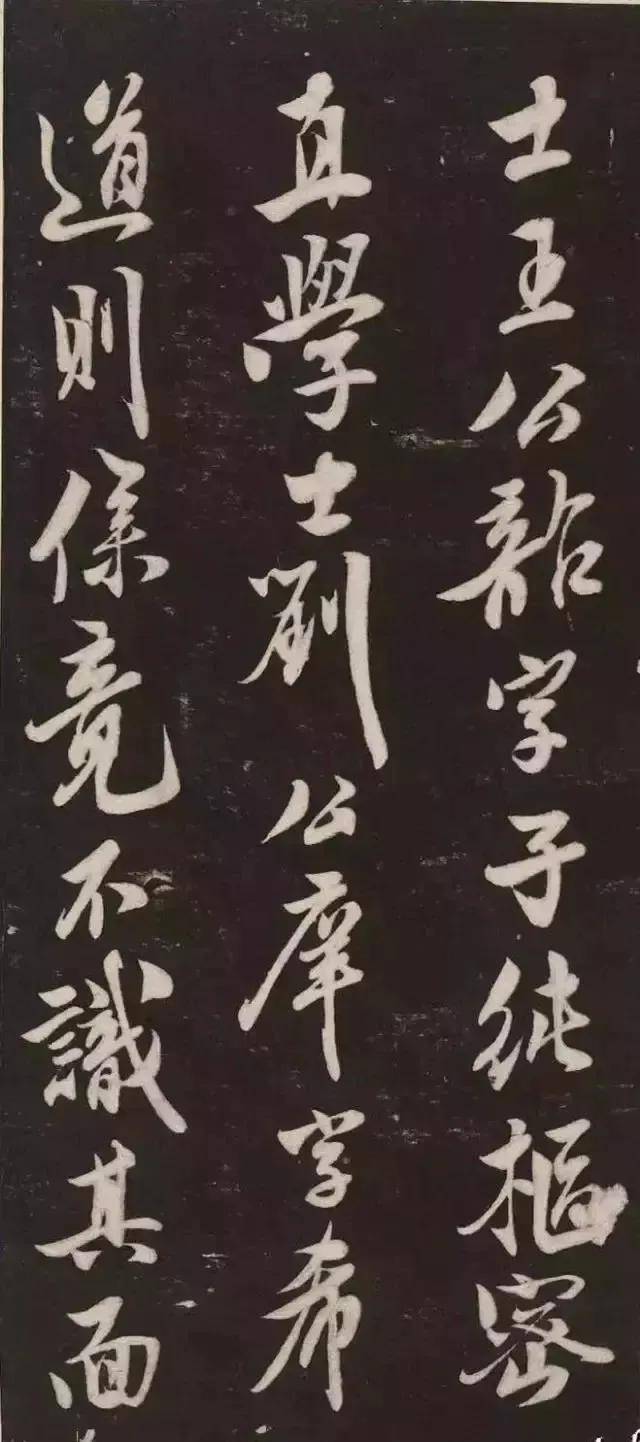 士王公韶字子純樞密
直學士劉公庠字希
道則保竟不識其面